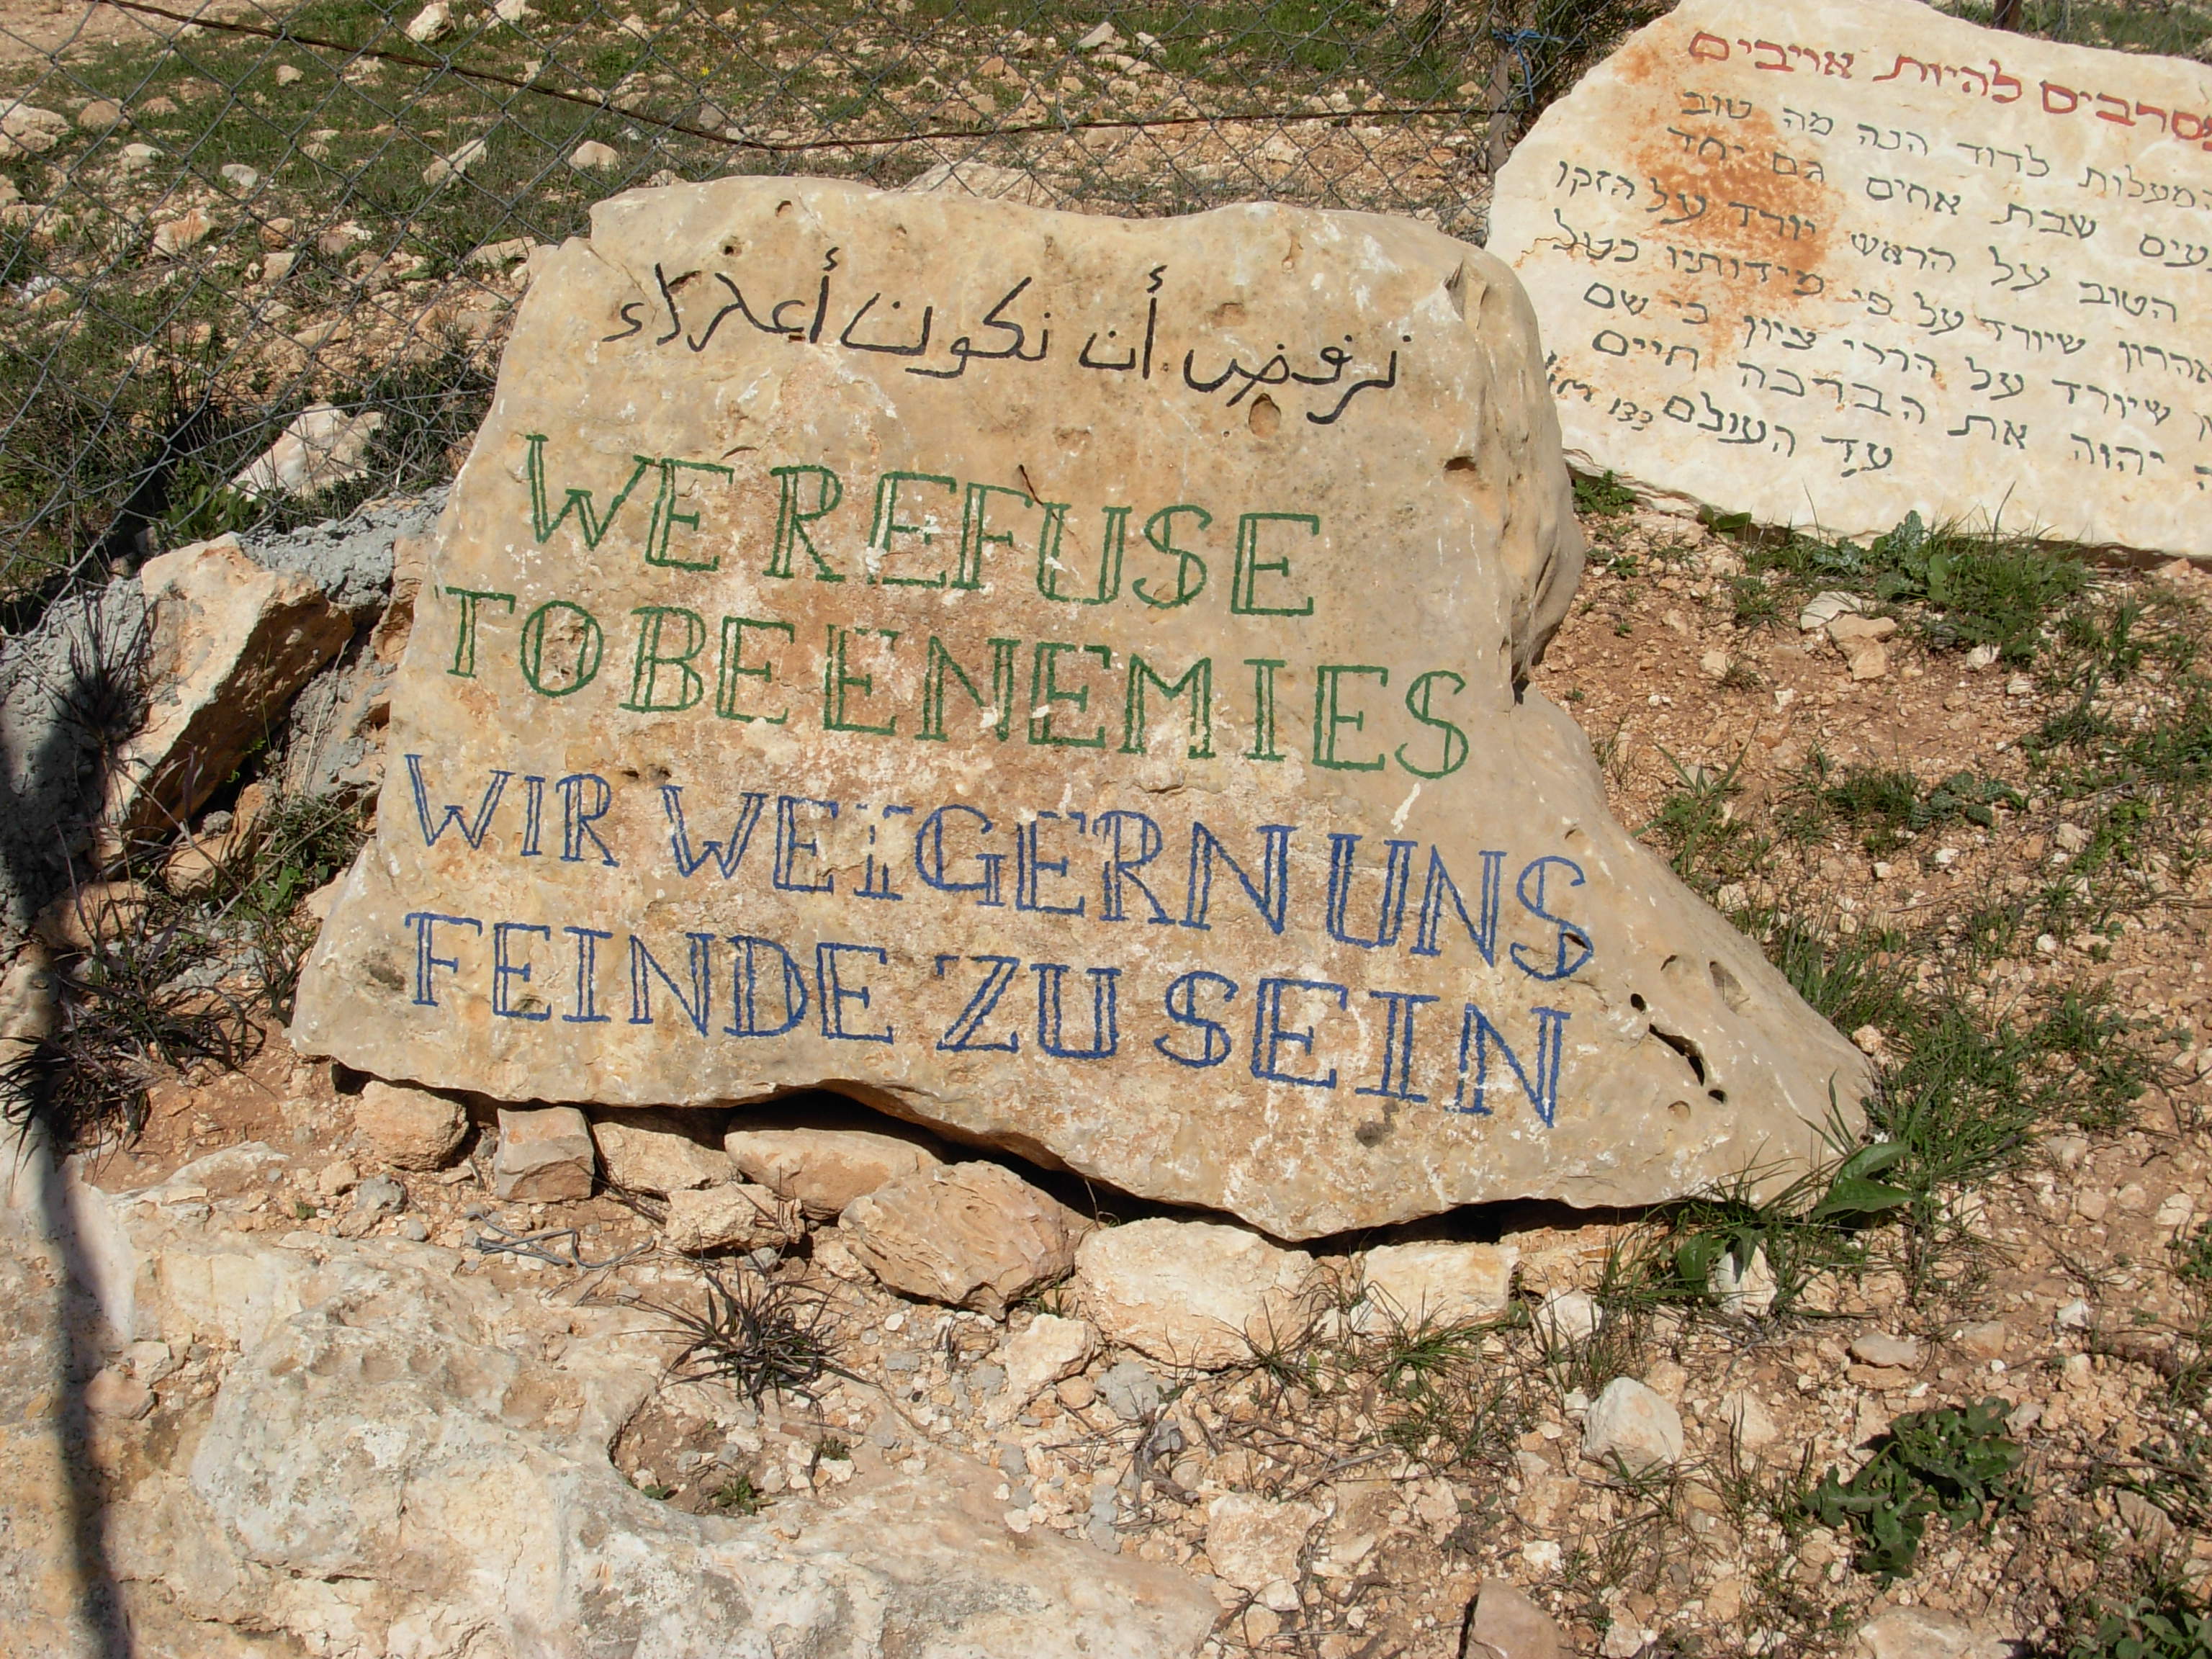 نرفض أن نكون أعداء
WE REFUSE
TO BE ENEMIES
WIR WEIGERN UNS
FEINDE ZU SEIN
מסרבים להיות אויבים
המעלות לדוד הנה מה טוב
שבת אחים גם יחד
הטוב על הראש יורד על הזקן
אהרון שיורד על פי מידותיו כטל
שיורד על הררי ציון כי שם
יהוה את הברכה חיים
עד העולם
133